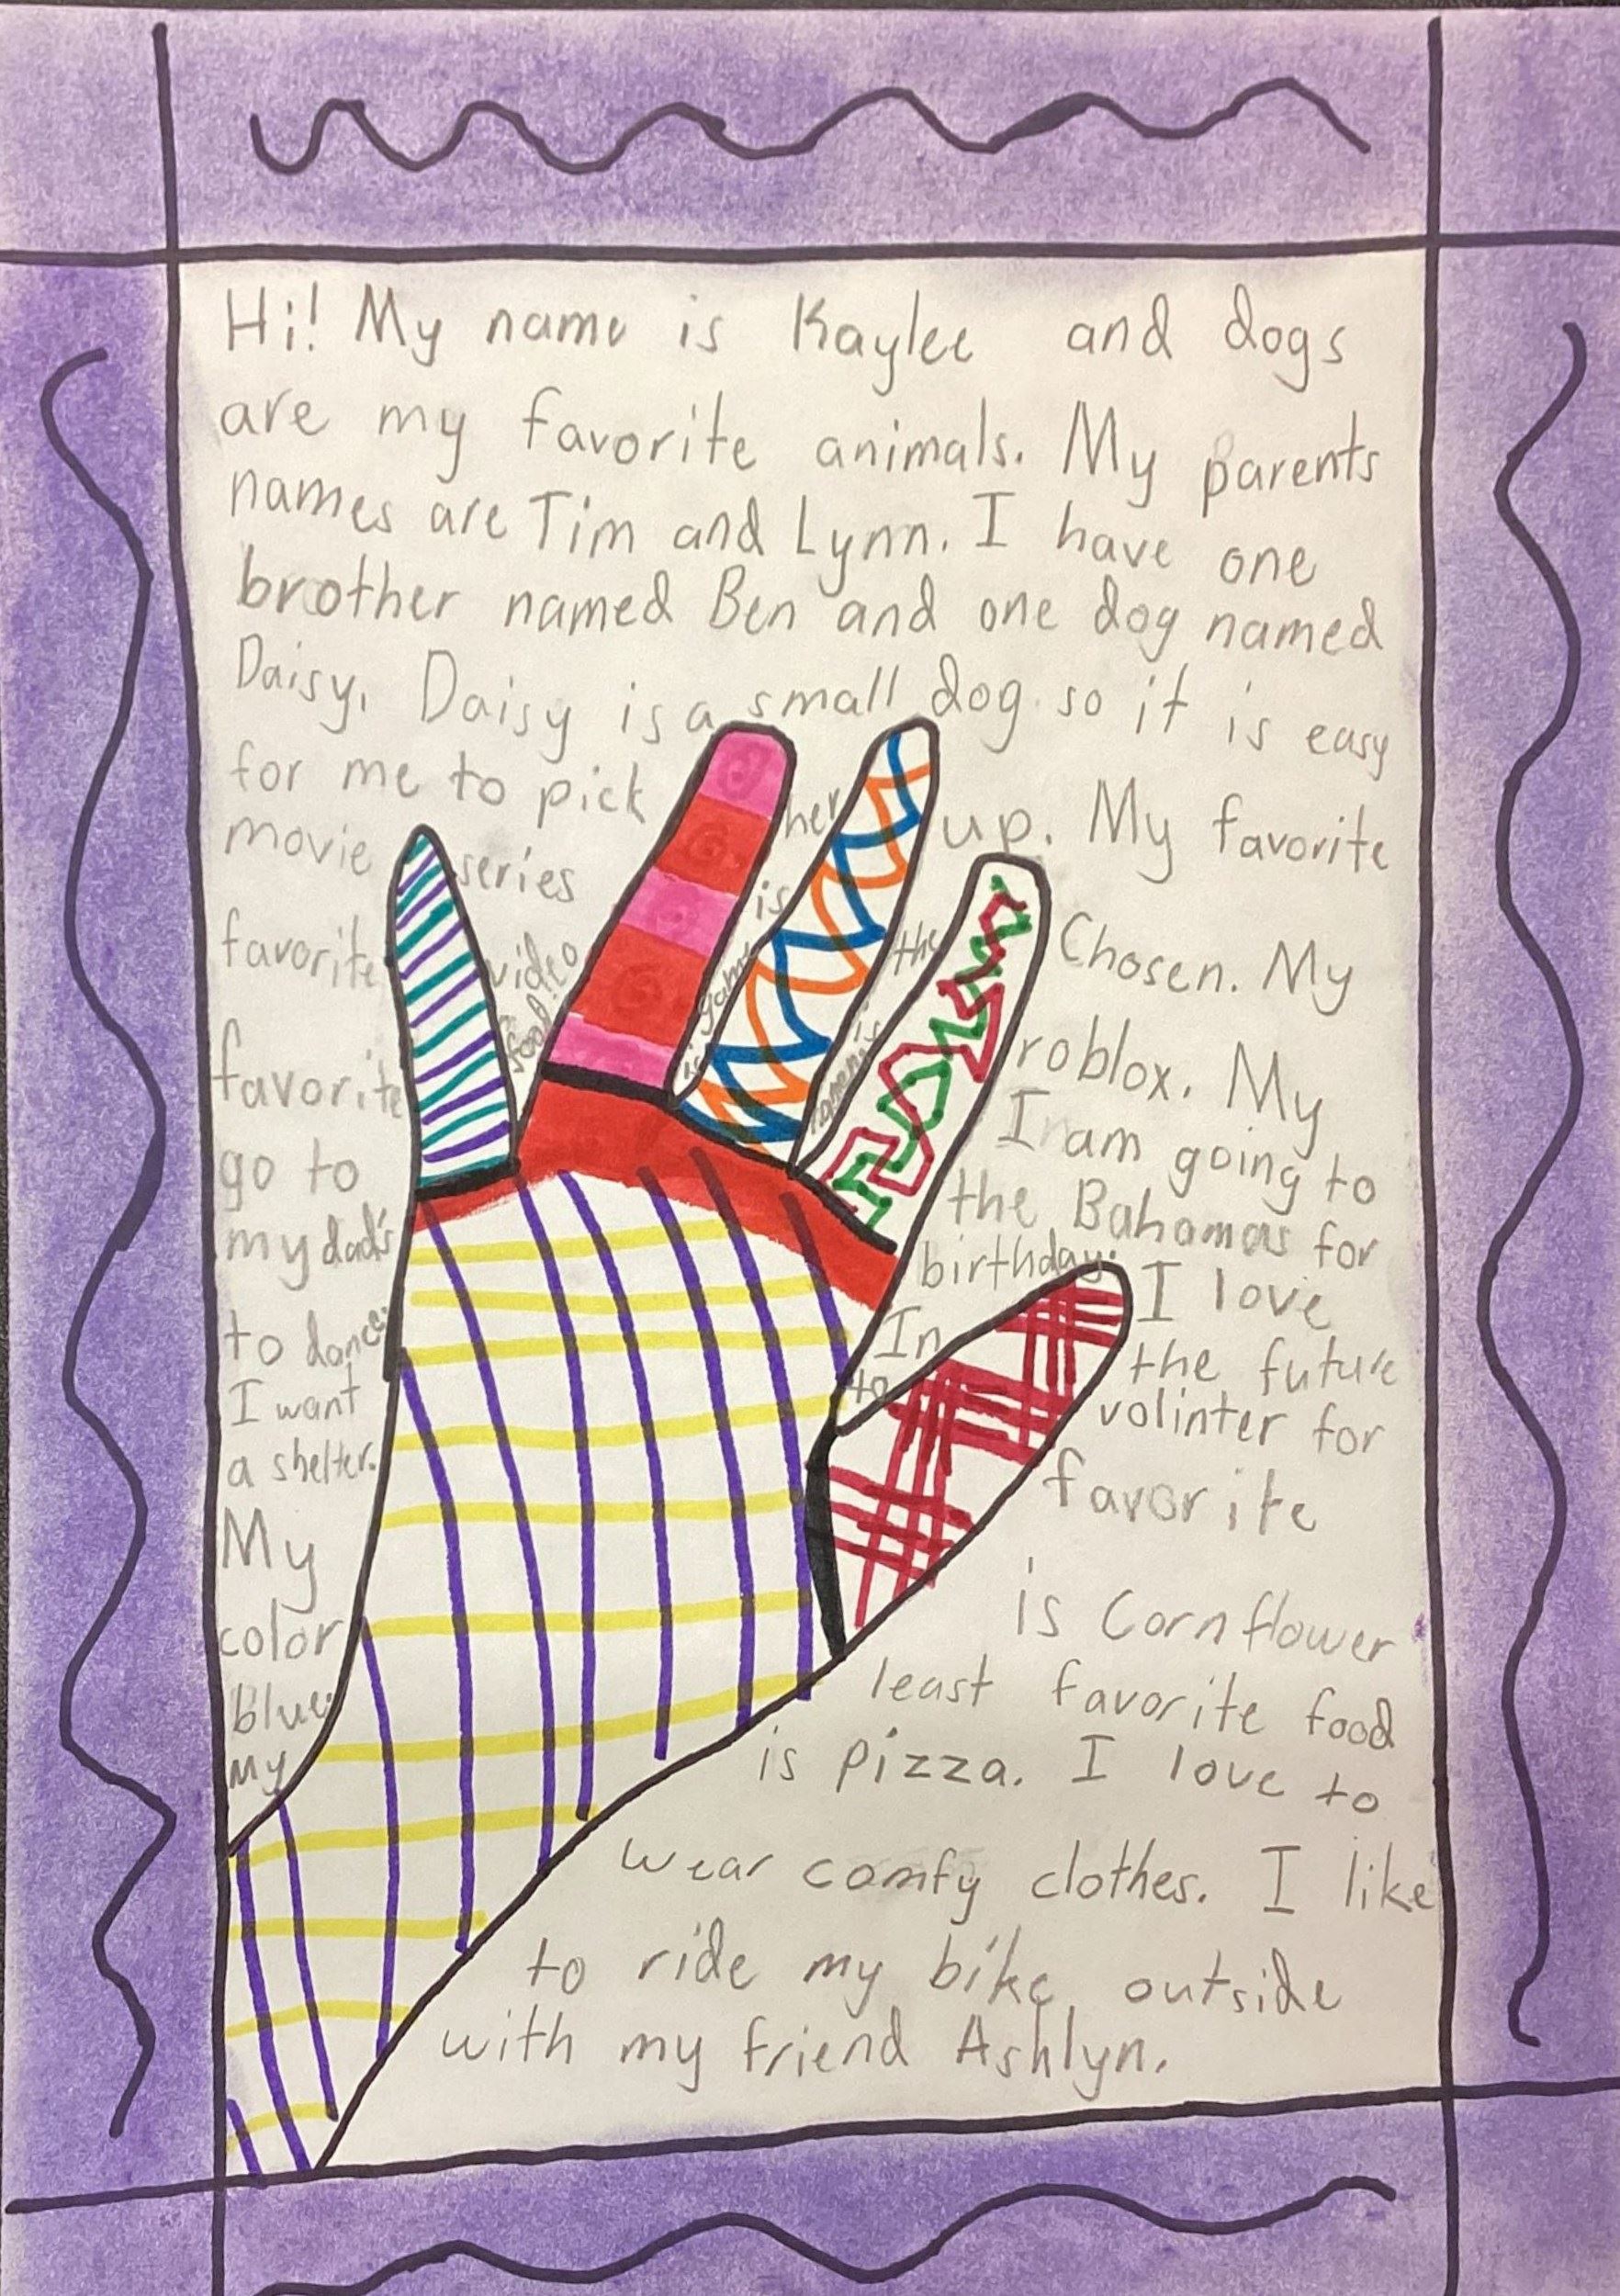 Hi! My name is Kaylee and dogs
are my favorite animals. My parents
names are Tim and Lynn. I have one
brother named Ben and one dog named
Daisy. Daisy is a small dog so it is easy
for me to pick her up. My favorite
movie series is the Chosen. My
favorite video game is roblox. My
favorite food is ramen. I am going to
go to the Bahamas for
my dad's birthday. I love
to dance. In the future
I want to volinter for
a shelter.
My favorite
color is Cornflower
Blue.
My least favorite food
is pizza. I love to
wear comfy clothes. I like
to ride my bike outside
with my friend Ashlyn.